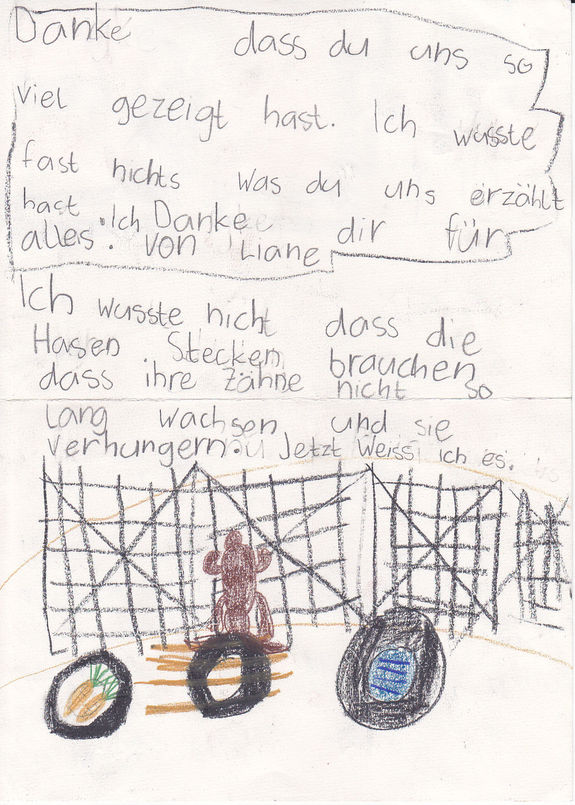 Danke dass du uns so
viel gezeigt hast. Ich wusste
fast nichts was du uns erzählt
hast. Ich Danke dir für
alles. von Liane
Ich wusste nicht dass die
Hasen Stecken brauchen
dass ihre Zähne nicht so
lang wachsen und sie
verhungern. Jetzt Weiss ich es.